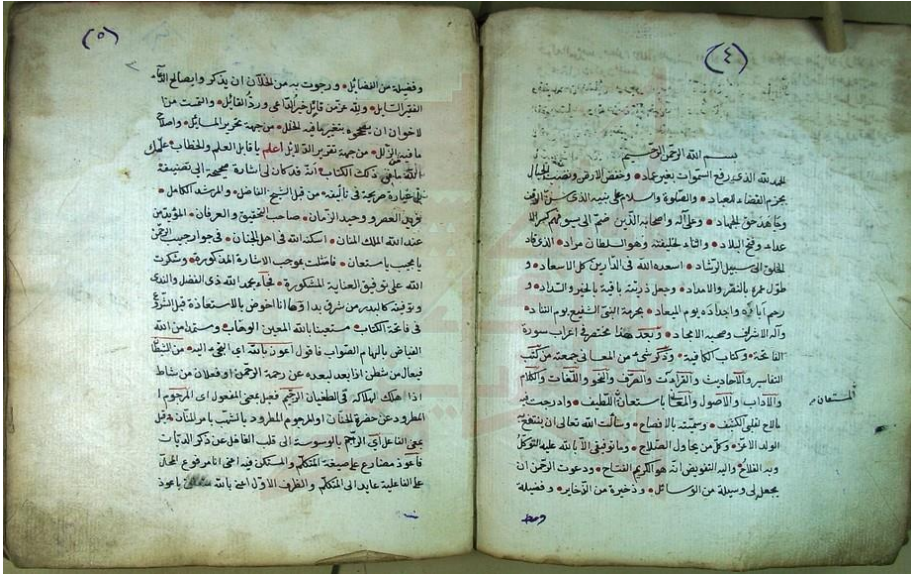 (٤)
بسم الله الرحمن الرحيم
الحمد لله الذي رفع السموات بغير عماد • وخفض الارض ونصب الجبال
بجزم القضاء للعباد • والصلوة والسلام على نبيه الذي سن الدين
وجاهد حق الجهاد • وعلى آله واصحابه الذين ضم الى سيوفهم كسر
عداه وفتح البلاد • والثناء لخليفته وهو السلطان مراد • الذي قاد
الخلق الى سبيل الرشاد • اسعده الله في الدارين كل الاسعاد • و
طول عمره بالنصر والامداد • وجعل ذريته باقية بالخير والسداد • و
رحم آباءه واجداده يوم الميعاد • بحرمة النبي الشفيع يوم التناد •
وآله الاشراف وصحبه الامجاد • وبعد فهذا مختصر في اعراب سورة
الفاتحة • وكتاب الكافية • وذكر شيء من المعاني جمعته من كتب
التفاسير والاحاديث والقراءت والصرف والنحو واللغات والكلام
والاداب والاصول والمعاني باستعانة اللطيف • وادرجت فيه
المستعان
مالاح لقلبي الكثيف • وسميته بالافصاح • وسألت الله تعالى ان ينتفع به
الولد الاعز • وكل من يحاول الصلاح • وما توفيقي الا بالله عليه التوكل
وبه الفلاح • واليه التفويض انه هو الكريم الفتاح • ودعوت الرحمن ان
يجعل لي وسيلة من الوسائل • وذخيرة من الذخاير • وفضيلة
(٥)
وفضيلة من الفضائل • ورجوت به من الخلان ان يذكر وايصال الدعاء
الفقير السايل • ولله عز من قايل خير الداعي ورد القائل • والتمست من
الاخوان ان يصححوه بتغير ما فيه الخلل • من جهة تحرير المسائل • واصلاح
ما فيه الزلل • من جهة تقرير الدلايل اعلم يا قابل العلم والخطاب • علمك
الله ما في ذلك الكتاب • انه قد كان لي اشارة صحيحة الى تصنيفه
لي عبارة صريحة في تأليفه • من قبل الشيخ الفاضل • والمرشد الكامل •
فريد العصر وحيد الزمان • صاحب التحقيق والعرفان • المؤيد من
عند الله الملك المنان • اسكنه الله في اهل الجنان • في جوار حبيب الرحمن
يا مجيب يا مستعان • فامتثلت بموجب الاشارة المذكورة • وشكرت
الله على توفيق العناية المشكورة • فجاء بحمد الله ذي الفضل والندى
وتوفيقه كالبدر من شرف بدا • وها انا اخوض بالاستعاذة قبل الشروع
في فاتحة الكتاب • مستعينا بالله المعين الوهاب • ومستمدا من الله
الفياض بالهام الصواب فاقول اعوذ بالله اي التجئ اليه • من الشيطان
فيعال من شطن اذا بعد لبعده عن رحمة الرحمن او فعلان من شاط
اذا هلك لهلاكه في الطغيان الرجيم فعيل بمعنى المفعول اي المرجوم
المطرود عن حضرة الجنان او المرجوم المطرود بالشهب بامر المنان • وقيل
بمعنى الفاعل اي الراجم بالوسوسة الى قلب الغافل عن ذكر الديان
فاعوذ مضارع على صيغة المتكلم والمستكن فيه اعني انا مرفوع المحل
على الفاعلية عايد الى المتكلم والظرف الاول اعني بالله باعوذ